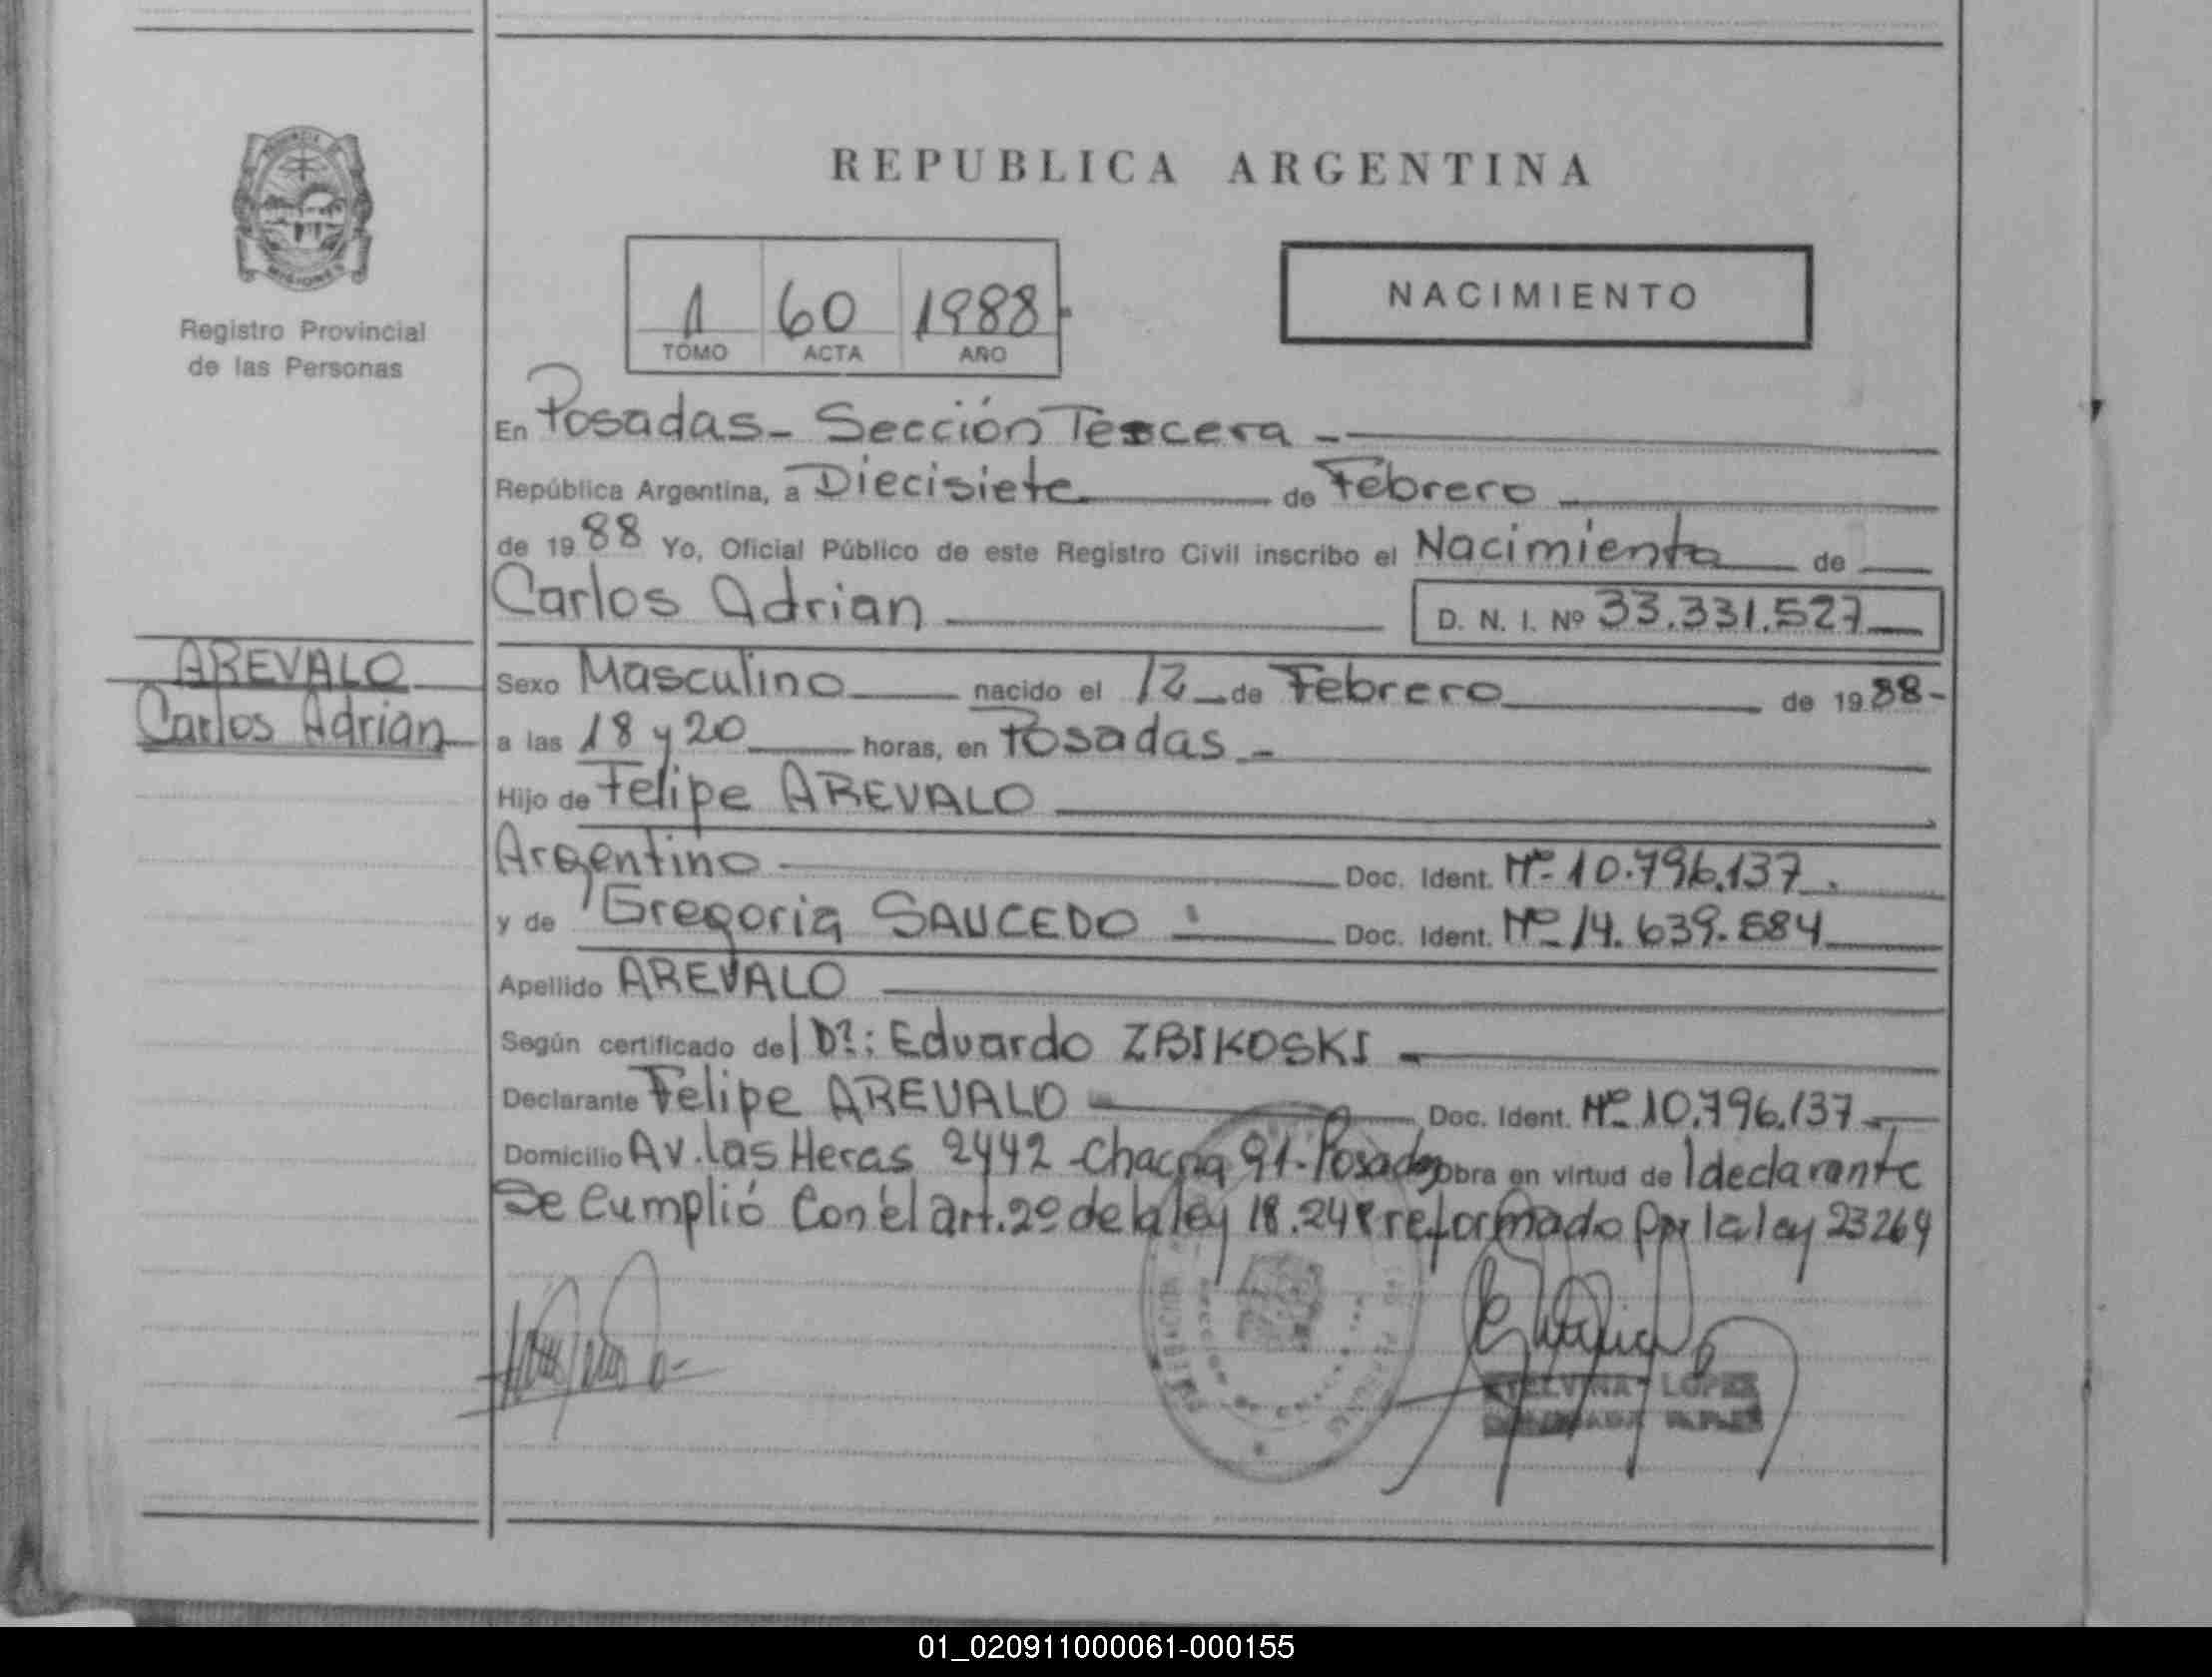 Registro Provincial
de las Personas
REPUBLICA ARGENTINA
1 60 1988
TOMO ACTA AÑO
NACIMIENTO
En Posadas - Sección Tercera -
República Argentina, a Diecisiete de Febrero
de 1988 Yo, Oficial Público de este Registro Civil inscribo el Nacimiento de
Carlos Adrian D. N. I. Nº 33.331.527
AREVALO
Carlos Adrian
Sexo Masculino nacido el 12 de Febrero de 1988-
a las 18 y 20 horas, en Posadas -
Hijo de Felipe AREVALO
Argentino Doc. Ident. Nº 10.796.137.
y de Gregoria SAUCEDO Doc. Ident. Nº 14.639.684
Apellido AREVALO
Según certificado del Dr: Eduardo ZBIKOSKI -
Declarante Felipe AREVALO Doc. Ident. Nº 10.796.137
Domicilio Av. las Heras 2442 - Chacra 91 - Posadas obra en virtud de l declarante
Se Cumplió Con el art. 2º de la ley 18.248 reformado por la ley 23264
LOPEZ
01_020911000061-000155